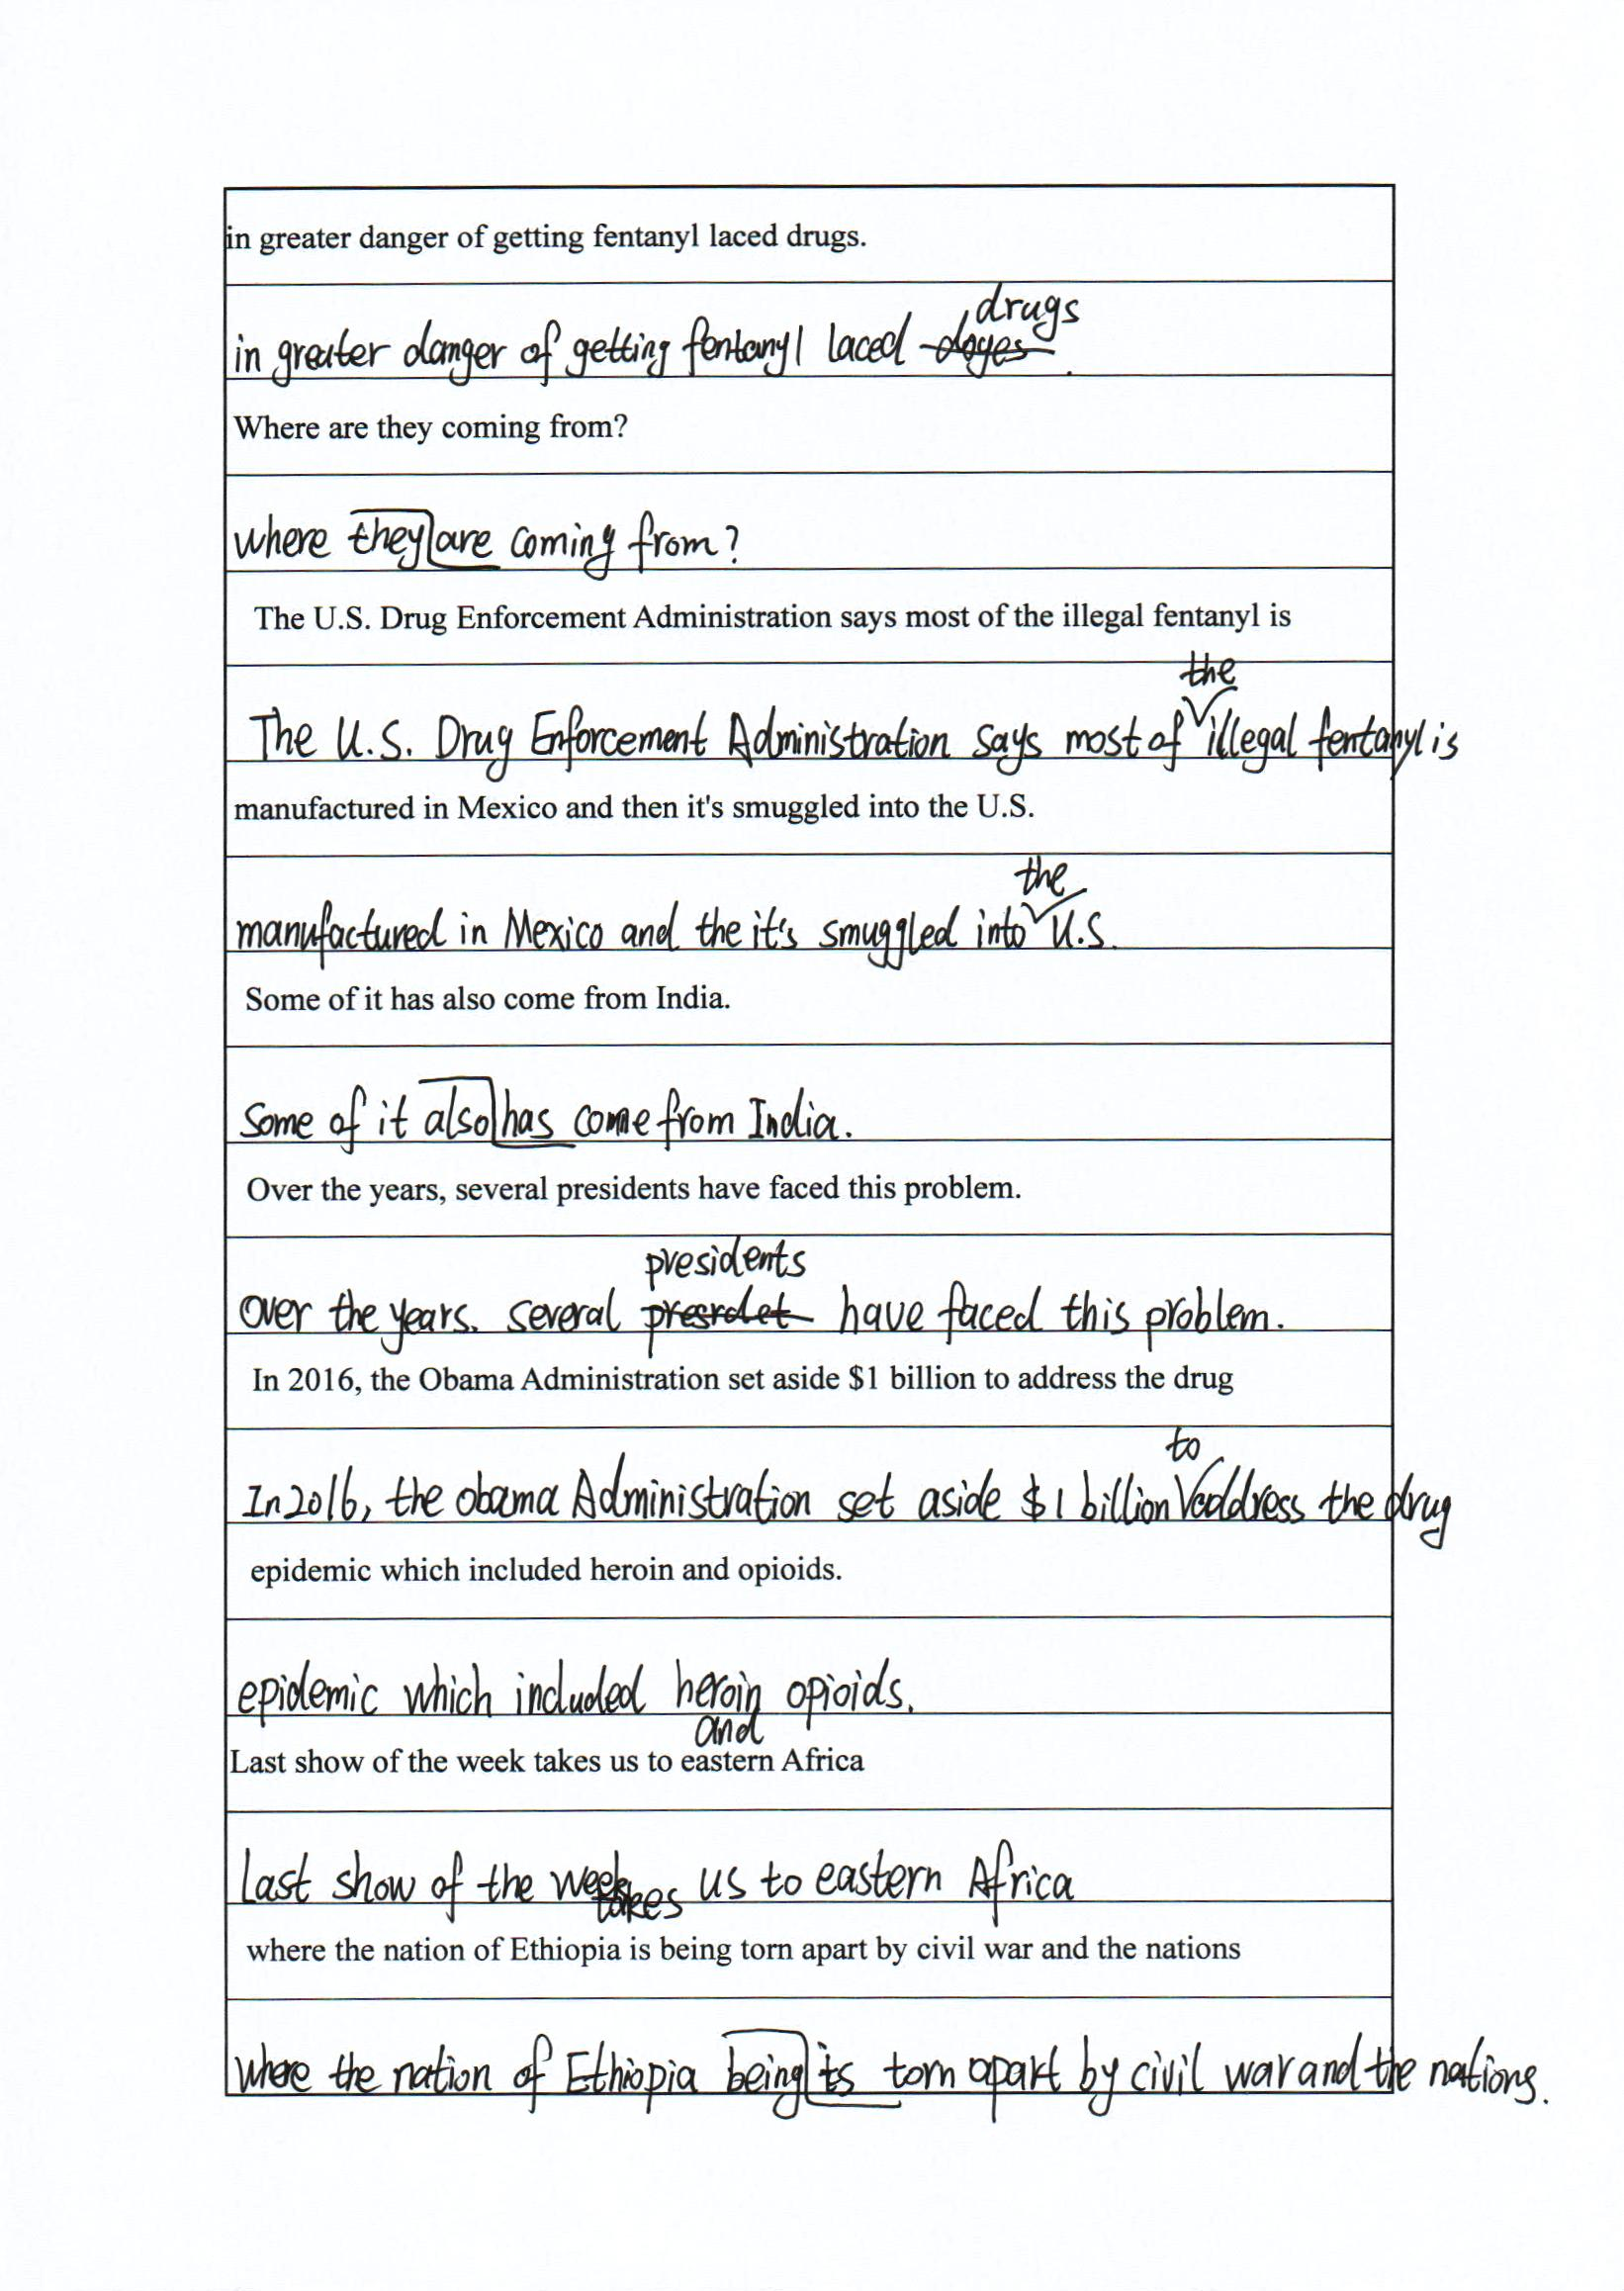 in greater danger of getting fentanyl laced drugs.
drugs
in greater danger of getting fentanyl laced doyes.
Where are they coming from?
where they are coming from?
The U.S. Drug Enforcement Administration says most of the illegal fentanyl is
the
The U.S. Drug Enforcement Administration says most of illegal fentanyl is
manufactured in Mexico and then it's smuggled into the U.S.
the
manufactured in Mexico and the it's smuggled into U.S.
Some of it has also come from India.
Some of it also has come from India.
Over the years, several presidents have faced this problem.
presidents
over the years. several presrdet have faced this problem.
In 2016, the Obama Administration set aside $1 billion to address the drug
to
In 2016, the obama Administration set aside $1 billion address the drug
epidemic which included heroin and opioids.
epidemic which included heroin opioids.
and
Last show of the week takes us to eastern Africa
Last show of the week takes us to eastern Africa
where the nation of Ethiopia is being torn apart by civil war and the nations
where the nation of Ethiopia being is torn apart by civil war and the nations.